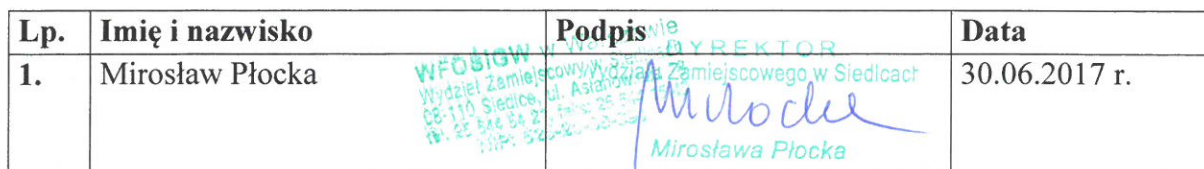 Lp. Imię i nazwisko Podpis Data
1. Mirosław Płocka 30.06.2017 r.
WFOŚiGW w Warszawie
Wydział Zamiejscowy w Siedlcach
08-110 Siedlce, ul.
DYREKTOR
Wydziału Zamiejscowego w Siedlcach
Mirosława Płocka